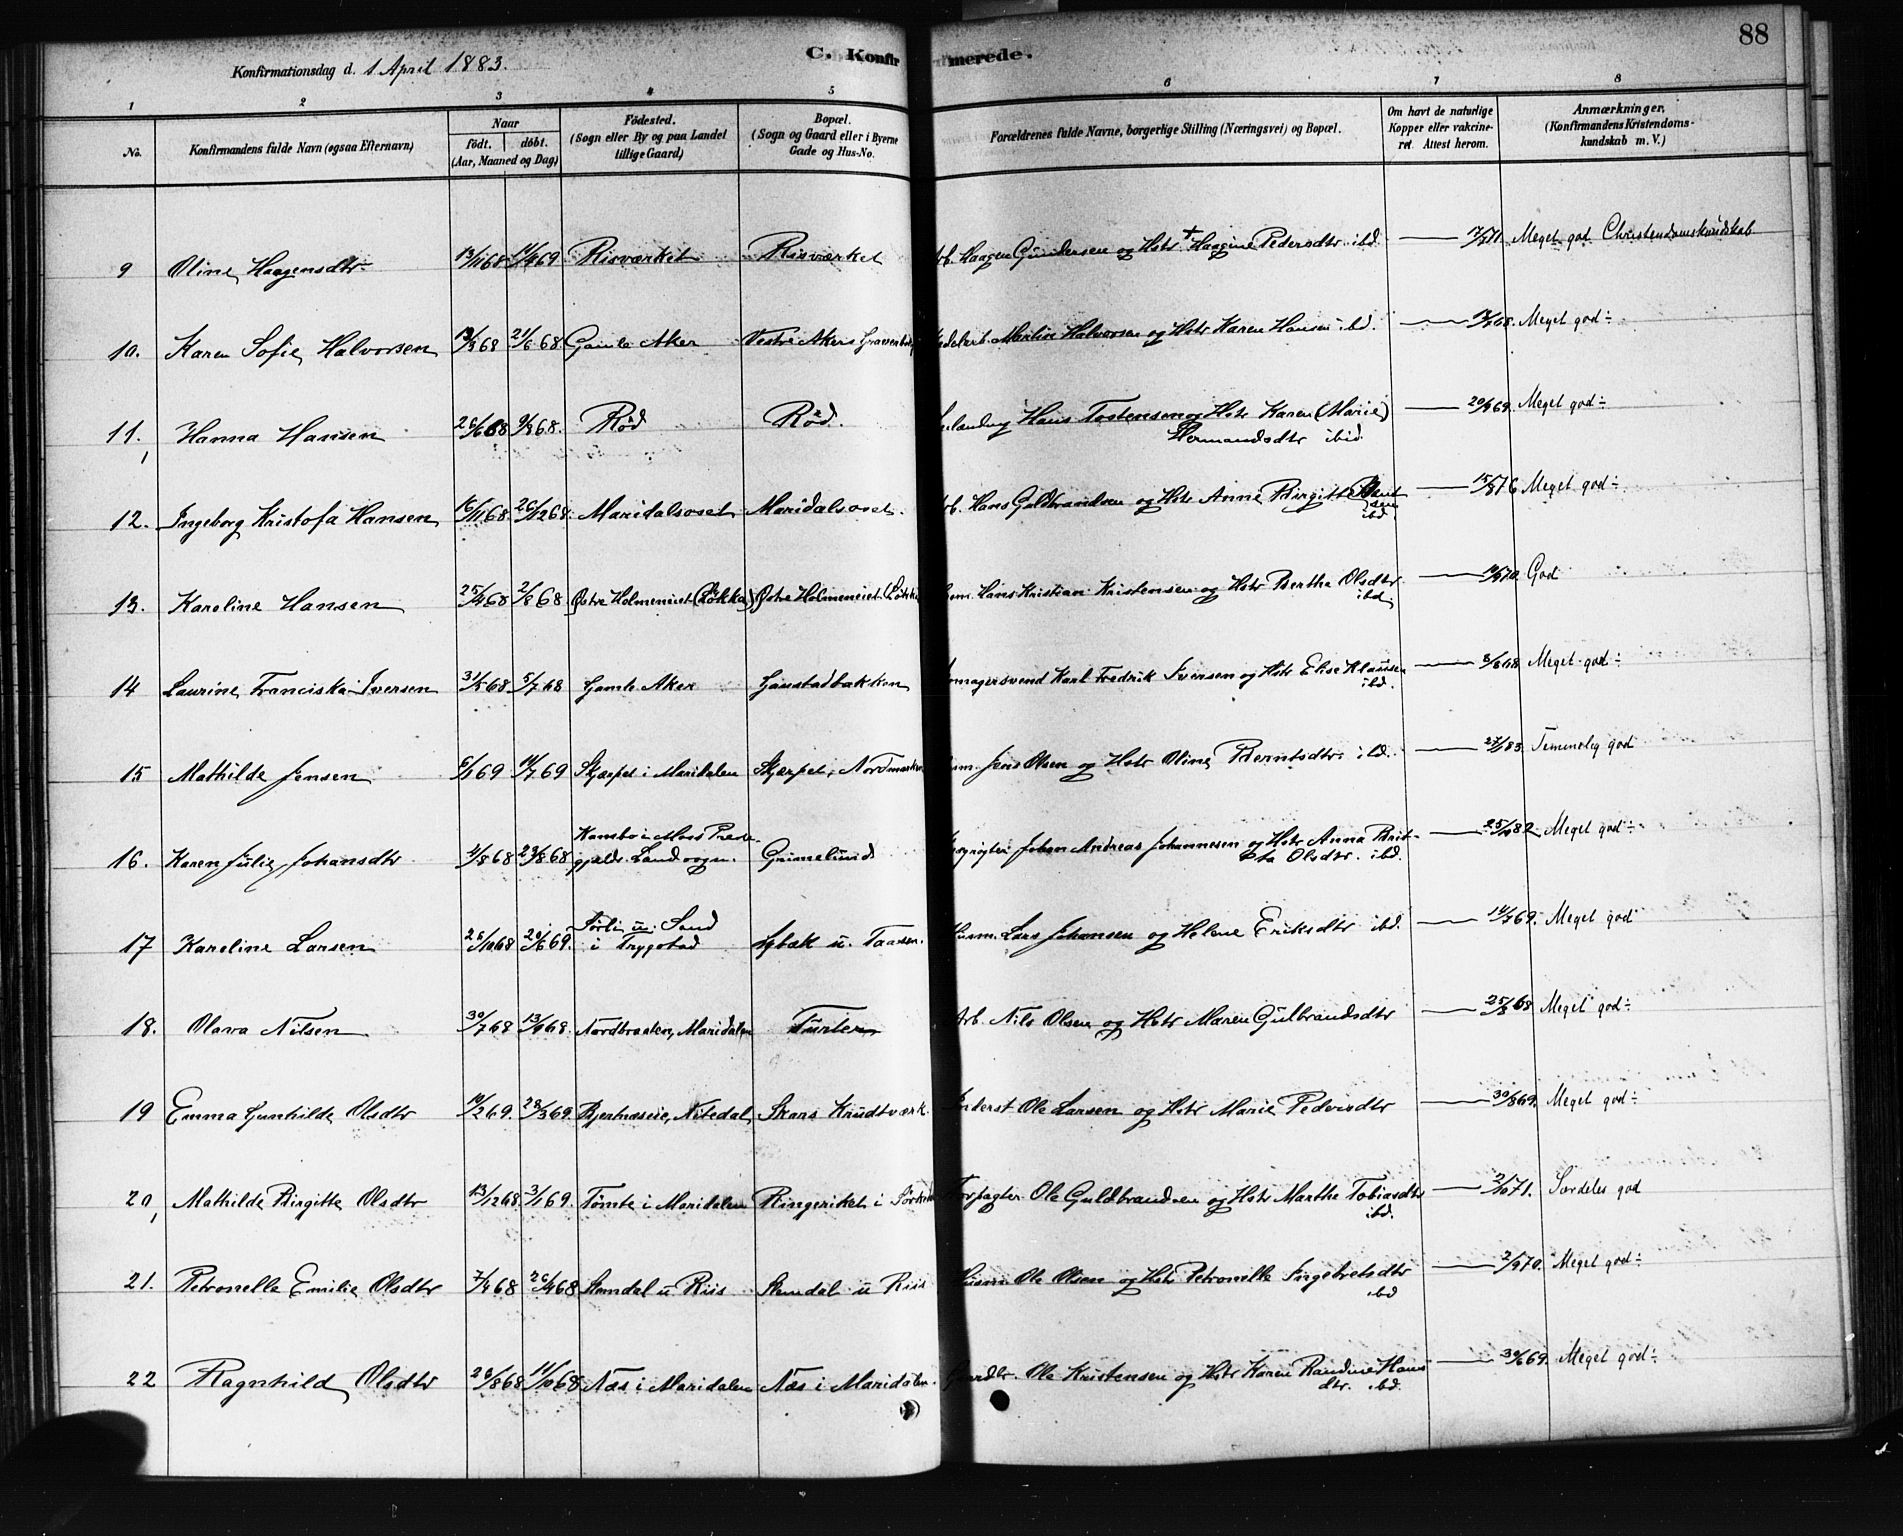 88
Konfirmationsdag d. 1 April 1883.
C. Konfirmerede.
1 2 3 4 5 6 7 8
No.
Konfirmandens fulde Navn (ogsaa Efternavn)
Naar
født. døbt.
(Aar, Maaned og Dag)
Fødested.
(Sogn eller By og paa Landet
tillige Gaard)
Bopæl.
(Sogn og Gaard eller i Byerne
Gade og Hus-No.
Forældrenes fulde Navne, borgerlige Stilling (Næringsvei) og Bopæl.
Om havt de naturlige
Kopper eller vakcine-
ret. Attest herom.
Anmærkninger.
(Konfirmandens Kristendoms-
kundskab m. V.)
9 Oline Haagensdtr 13/11 68 Risværket Risværket Arb. Haagen Gundersen og Hstr + Haagine Pedersdtr ibd. Meget god Christendomskundskab
10. Karen Sofie Halvorsen 13/3 68 21/6 68 Gamle Aker Vestre Akers Martin Halvorsen og Hstr Karen Hansen ibd. Meget god ÷
11. Hanna Hansen 26/6 68 9/8 68. Rød Rød. Hans Tostensen og Hstr Karen (Marie)
Hermandsdtr ibid. 20/9 69. Meget god ÷
12. Ingeborg Kristofa Hansen 16/11 68 26/12 68. Maridalsoset Maridalsoset. Arb. Hans Guldbrandsen og Hstr Anne Birgitte
ibd. 15/8 76 Meget god ÷
13. Karoline Hansen 25/4 68 2/8 68 Østre Holmeneiet (Løkka) Østre Holmeneiet (Løkka) Husm. Hans Kristian Kristensen og Hstr Berthe Olsdtr
ibd. God
14 Laurine Franciska Iversen 31/5 68 5/7 68 Gamle Aker Gaustadbakken Karl Fredrik Iversen og Hstr Elise Klausen
ibd. Meget god ÷
15 Mathilde Jensen 6/1 69 11/7 69 Skjærpet i Maridalen Skjærpet, Nordmarken Husm. Jens Olsen og Hstr Oline Berntsdtr. ibd. 27/1 83. Temmelig god
16. Karen Julie Johansdtr 4/8 68 23/8 68 Kambo i Moss Præste-
gjeld. Landsogn. Grimelund Johan Andreas Johannesen og Hstr Anna Brit-
ta Olsdtr. ibd. 25/9 82 Meget god ÷
17 Karoline Larsen 26/10 68 20/6 69. Sørli u. Sand
i Trygstad Lybæk u. Taasen. Husm. Lars Johansen og Helene Eriksdtr ibd. 14/7 69. Meget god
18. Olava Nilsen 30/7 68 13/9 68. Nordbraaten, Maridalen Turter Arb. Nils Olsen og Hstr Maren Gulbrandsdtr 25/8 68 Meget god ÷
19 Emma Gunhilde Olsdtr 14/2 69. 28/3 69. Nitedal Skars Krudtværk Inderst Ole Larsen og Hstr Marie Pedersdtr 30/8 69. Meget god ÷
20, Mathilde Birgitte Olsdtr 13/12 68 3/1 69. Tømte i Maridalen Ringeriket i Forpagter Ole Guldbrandsen og Hstr Marthe Tobiasdtr
ibd. 2/10 71. Særdeles god
21. Petronelle Emilie Olsdtr 7/4 68 26/4 68 Stemdal u Riis Stemdal u Riis Husm. Ole Olsen og Hstr Petronelle Ingebretsdtr
ibd 2/9 70. Meget god ÷
22 Ragnhild Olsdtr 26/8 68 11/10 68 Næs i Maridalen Næs i Maridalen. Gaardbr. Ole Kristensen og Hstr Karen Randine Hans
dtr. ibd. 30/6 69. Meget god ÷